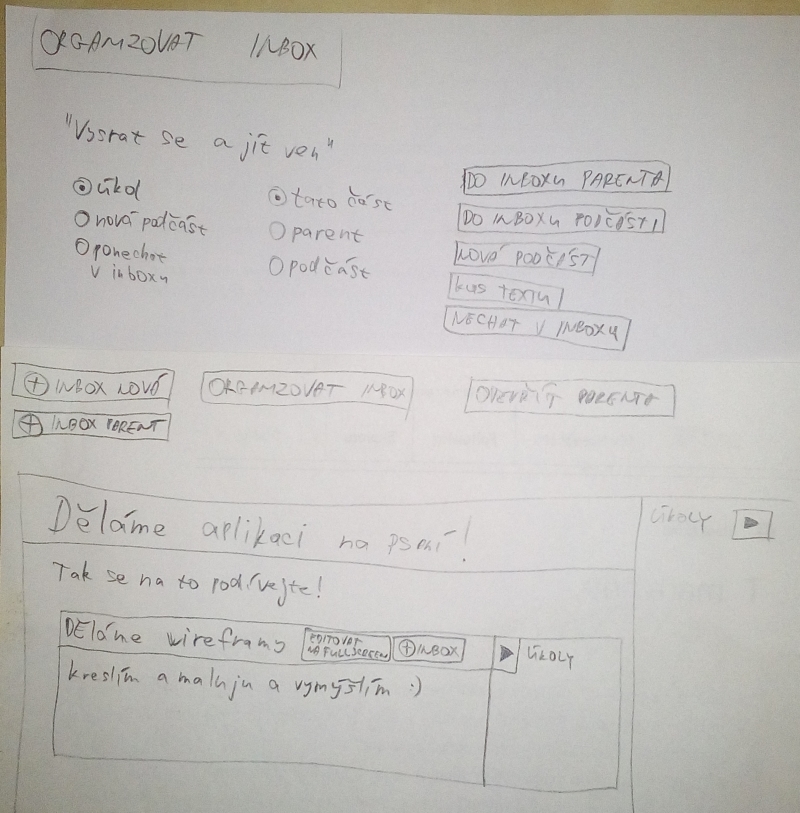 ORGANIZOVAT INBOX
"Vysrat se a jít ven"
úkol
nová podčást
ponechat
v inboxu
tato část
parent
podčást
DO INBOXU PARENTA
DO INBOXU PODČÁSTI
NOVÁ PODČÁST
KUS TEXTU
NECHAT V INBOXU
+ INBOX NOVÁ
ORGANIZOVAT INBOX
OTEVŘÍT PARENTA
+ INBOX PARENT
Děláme aplikaci na psaní!
ÚKOLY
Tak se na to podívejte!
Děláme wireframy
EDITOVAT
NA FULLSCREEN
+ INBOX
ÚKOLY
kreslím a maluju a vymýšlím :)